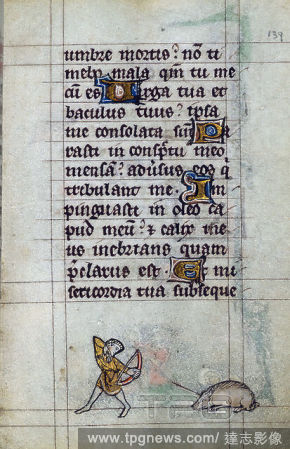 139
umbre mortis : nō ti
mebo mala qm̄ tu me
cū es Virga tua et
baculus tuus : ipsa
me consolata sūt Pa
rasti in consptū meo
mensā : adūsus eos q̄
tribulant me . Im
pinguasti in oleo ca
pud meū : ⁊ calix me
us inebrians quam
p̄clarus est . Et mi
sericordia tua subseque
TPG
www.tpgnews.com/ 達志影像